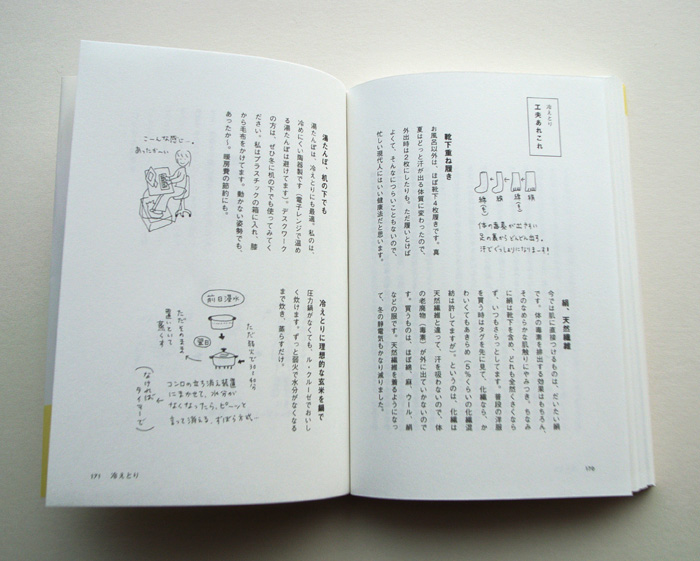 冷えとり
工夫あれこれ
綿
絹
綿
絹
体の毒素が出やすい
足の裏からどんどん出る。
汗でぐっしょりになりまーす!
靴下重ね履き
お風呂以外は、ほぼ靴下4枚履きです。真
夏はどっと汗が出る体質に変わったので、
外出時は2枚にしたりも。ただ履いとけば
よくて、そんなにつらいこともないので、
忙しい現代人にはいい健康法だと思います。
絹、天然繊維
今では肌に直接つけるものは、だいたい絹
です。体の毒素を排出する効果はもちろん、
そのなめらかな肌触りにやみつき。ちなみ
に絹は靴下を含め、どれも全然くさくなら
ず、いつもさらっとしてます。普段の洋服
を買う時はタグを先に見て、化繊なら、か
わいくてもあきらめ(5%くらいの化繊混
紡は許してますが)。というのは、化繊は
天然繊維と違って、汗を吸わないので、体
の老廃物(毒素)が外に出ていかないので
す。買うものは、ほぼ綿、麻、ウール、絹
などの服です。天然繊維を着るようになっ
て、冬の静電気もかなり減りました。
170
湯たんぽ、机の下でも
湯たんぽは、冷えとりにも最適。私のは、
冷めにくい陶器製です(電子レンジで温め
る湯たんぽは避けてます)。デスクワーク
の方は、ぜひ冬に机の下でも使ってみてく
ださい。私はプラスチックの箱に入れ、膝
から毛布をかけてます。動かない姿勢でも、
あったか〜。暖房費の節約にも。
こーんな感じー。
あったかーい
冷えとりに理想的な玄米を鍋で
圧力鍋がなくても、ル・クルーゼでおいし
く炊けます。ずっと弱火で水分がなくなる
まで炊き、蒸らすだけ。
前日浸水
翌日
ただ弱火で
ただそのまま
置いといて
蒸らす
コンロの立ち消え装置
にまかせて、水分が
なくなったら、ピーッと
言って消える、ずぼら方式…
(なければ
タイマーで)
171 冷えとり